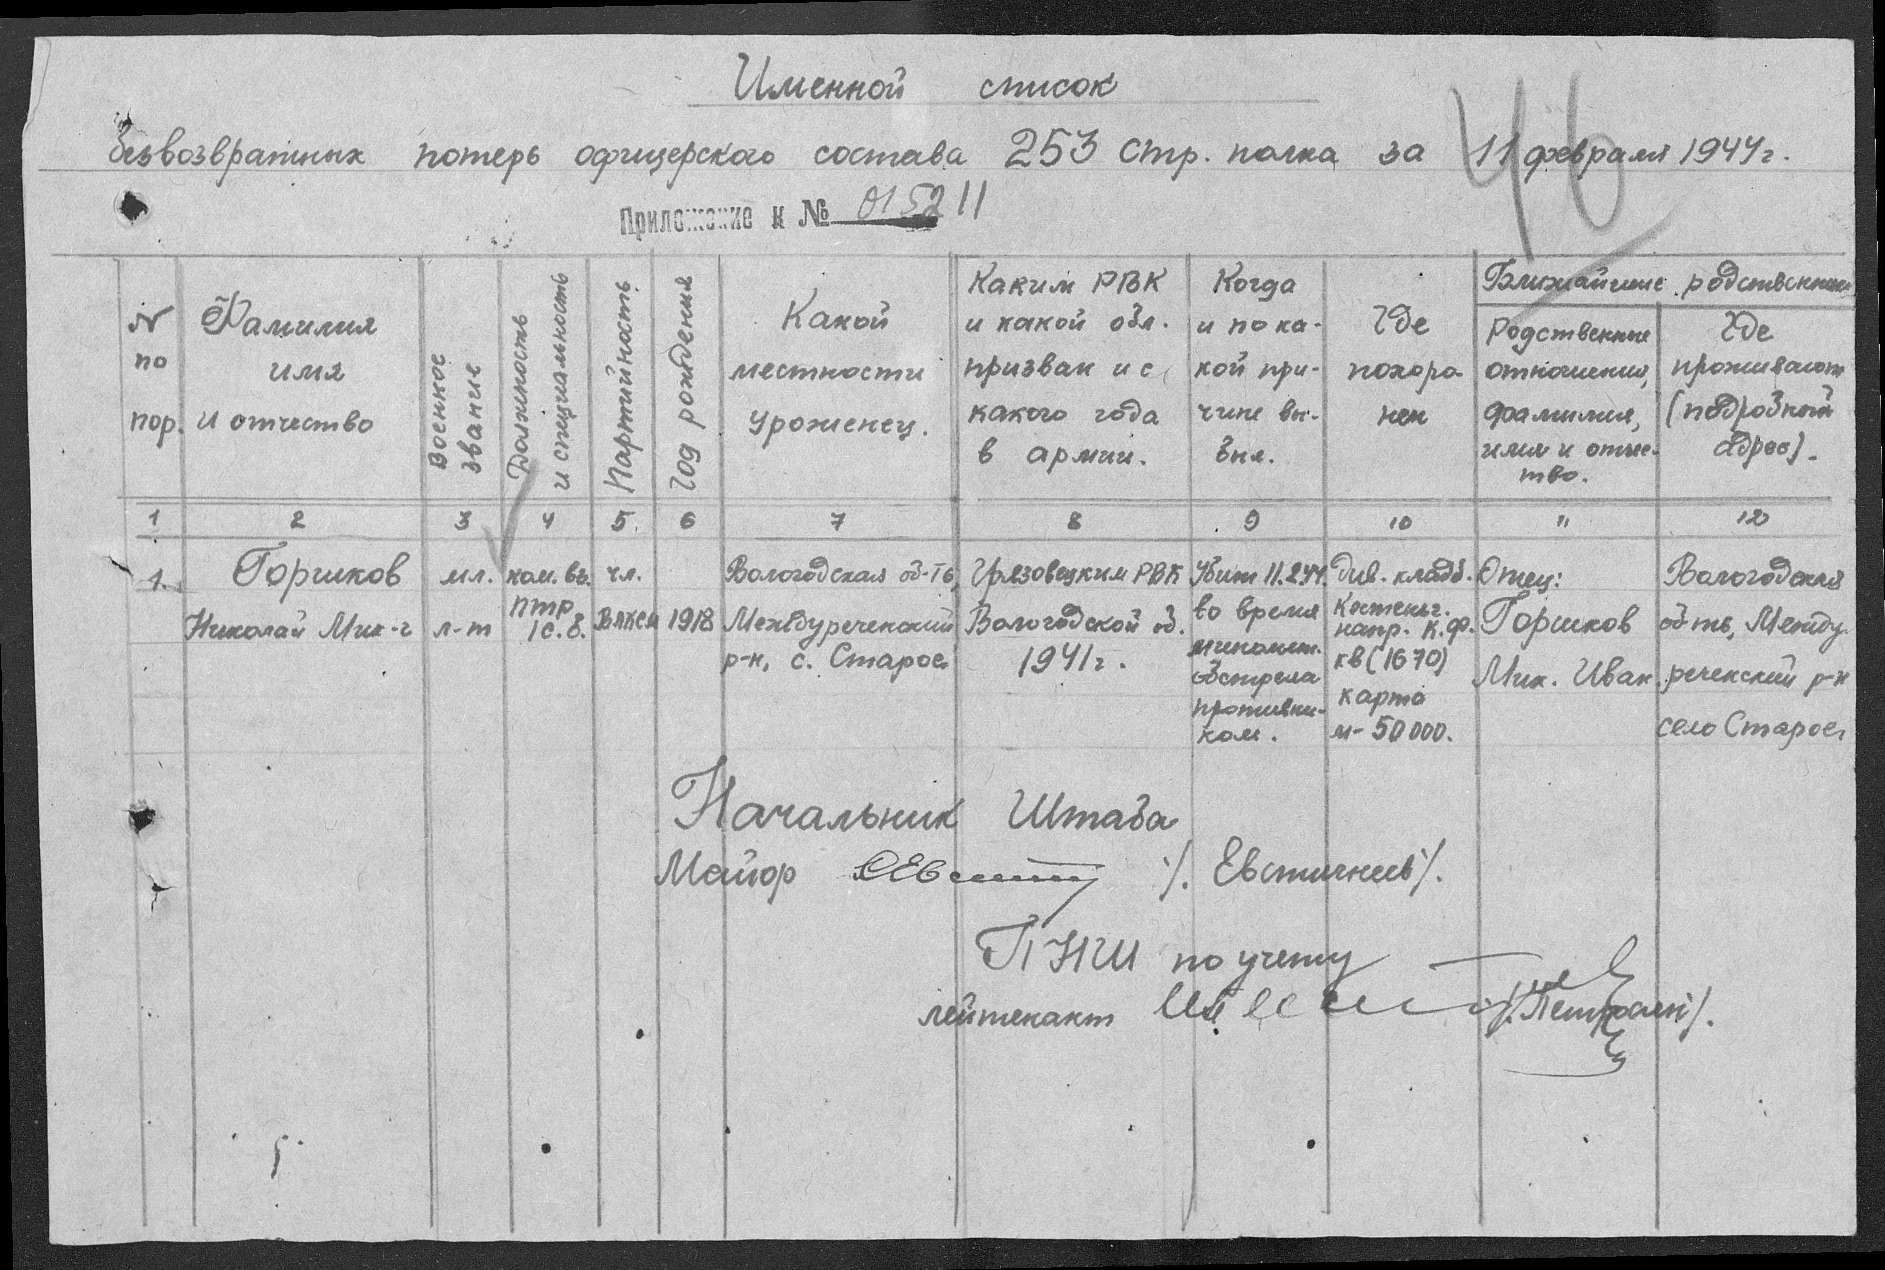 Именной список
безвозвратных потерь офицерского состава 253 стр. полка за 11 февраля 1944 г.
46
Приложение к № 015211
№ по пор.
Фамилия имя и отчество
Военное звание
Должность и специальность
Партийность
Год рождения
Какой местности уроженец.
Каким РВК и какой обл. призван и с какого года в армии.
Когда и по какой причине выбыл.
Где похоронен
Ближайшие родственники
Родственные отношения, фамилия, имя и отчество.
Где проживают (подробный адрес).
1 2 3 4 5 6 7 8 9 10 11 12
1.
Горшков
Николай Мих-ч
мл.
л-т
ком. вз.
птр
1 с.б.
чл.
ВЛКСМ
1918
Вологодская об-ть,
Междуреченский
р-н, с. Старое
Грязовецким РВК
Вологодской об.
1941 г.
Убит 11.2.44.
во время
миномет.
обстрела
противни-
ком.
Див. кладб.
Костеньг.
напр. К.Ф.
кв (1670)
карта
м- 50 000.
Отец:
Горшков
Мих. Иван.
Вологодская
об-ть, Между-
реченский р-н
село Старое,
Начальник Штаба
Майор /. Евстигнеев /.
ПНШ по учету
лейтенант